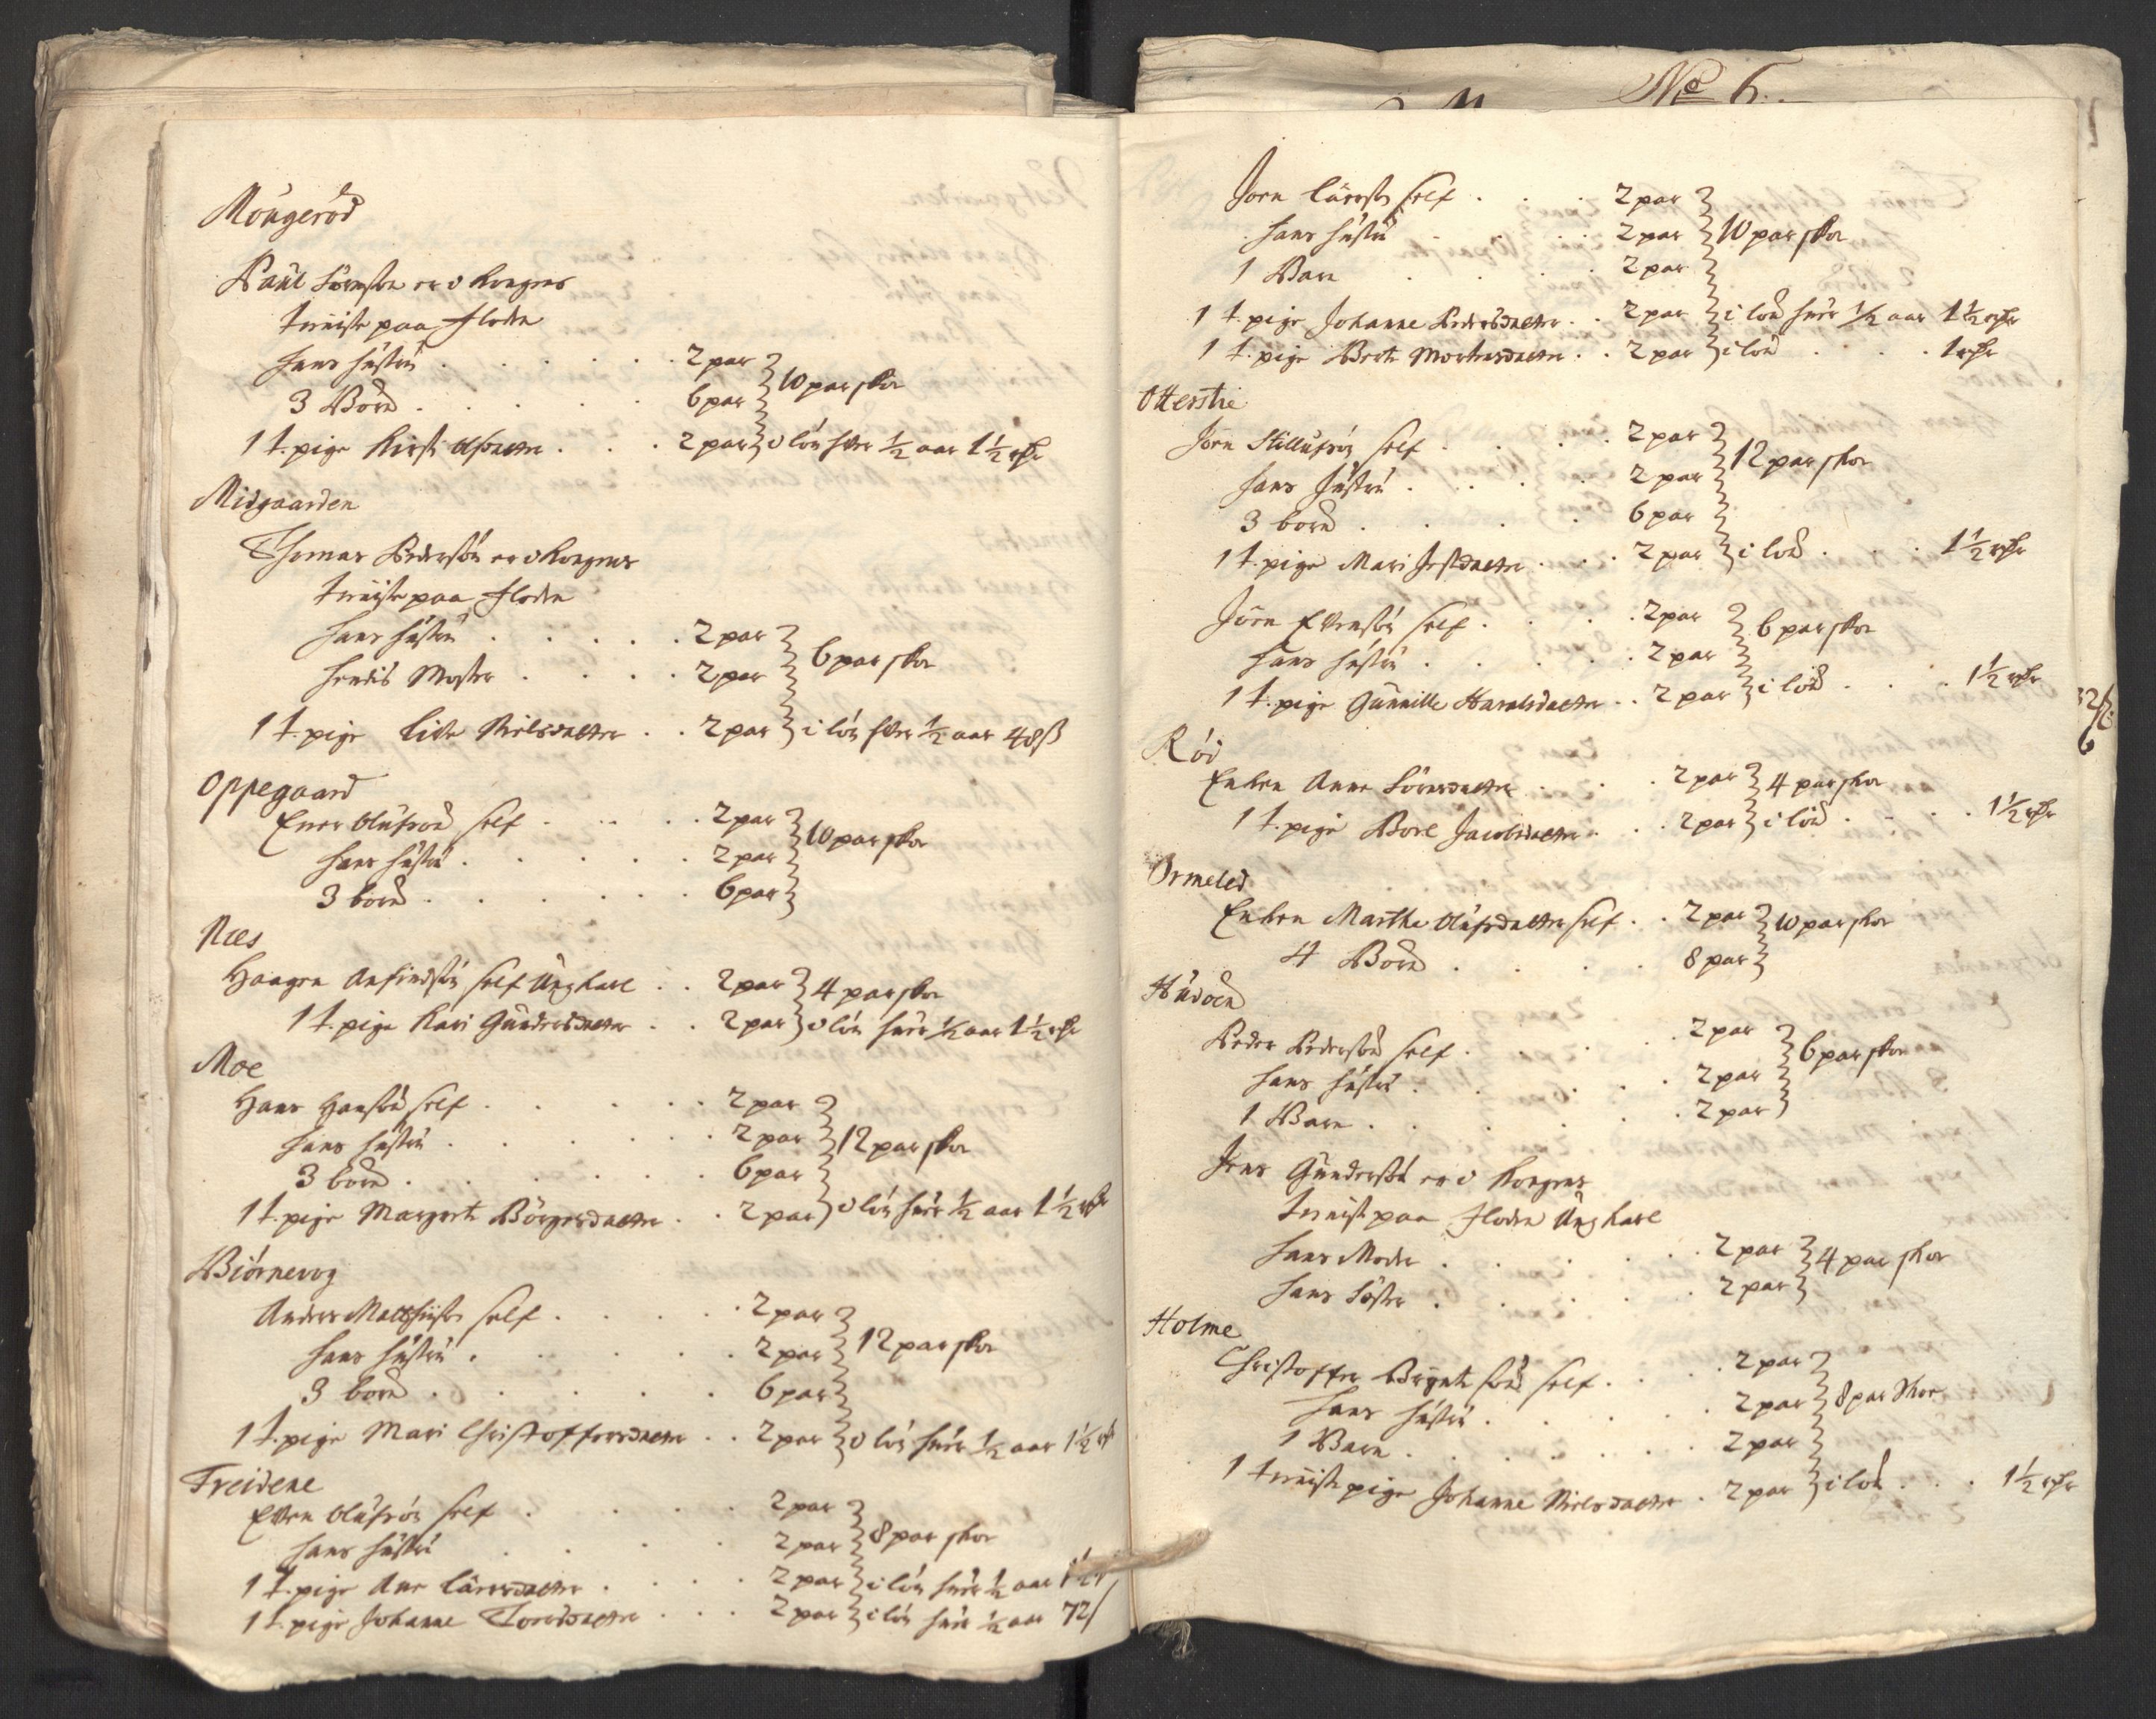 Möugeröd
Paül Sörensön er i kongens
tienniste paa floden
hans hüstrü . . . . . . 2 par
3 Börn . . . . . 6 par } 10 par skoe
1 t. pige Kirsti Olsdatter . . . 2 par } i lön hver ½ aar 1½ rdr
Midgaarden
Thomas Pedersön er i kongens
tienniste paa floden
hans hüstrü . . . . . 2 par
hendis Moster . . . . 2 par } 6 par skoe
1 t. pige Lisbe Nielsdatter . . 2 par } i lön hver ½ aar 48 ß
Oppegaard
Ener Olüfsön self . . . . 2 par
hans hüstrü . . . . . . 2 par } 10 par skoe
3 börn . . . . . . 6 par
Næs
Haagen Anfindsön self Ungkarl . . 2 par } 4 par skoe
1 t. pige Kari Gündersdatter . . 2 par } i lön hver ½ aar 1½ rdr
Moe
Hans Hansön self . . . . . 2 par
hans hüstrü . . . . . . 2 par } 12 par skoe
3 börn . . . . . . 6 par
1 t. pige Margrete Börgersdatter . . 2 par } i lön hver ½ aar 1½ rdr
Biörnevog
Anders Matthisön self . . . . . 2 par
hans hüstrü . . . . . . 2 par } 12 par skoe
3 börn . . . . . . 6 par
1 t. pige Mari Christoffersdatter . . 2 par } i lön hver ½ aar 1½ rd
Treidene
Even Olüfsön self . . . . 2 par
hans hüstrü . . . . 2 par } 8 par skoe
1 t. pige Ane Larsdatter . . . . 2 par } i lön hver ½ aar 1½ r
1 t. pige Johanne Toresdatter . . . 2 par } i lön hver ½ aar 72 ß
No 6.
Jörn Larsön self . . . 2 par
hans hüstrü . . . . 2 par } 10 par skoe
1 Barn . . . . 2 par
1 t. pige Johanne Pedersdatter . . 2 par } i lön hver ½ aar 1½ rdr
1 t. pige Berte Mortensdatter . . 2 par } i lön . . . . 1 rdr
Otterstie
Jörn Stillüfsön self . . . . 2 par
hans hüstrü . . . . 2 par } 12 par skoe
3 börn . . . . 6 par
1 t. pige Mari Jensdatter . . . 2 par } i lön . . . 1½ rdr
Jörn Evensön self . . . . 2 par
hans hüstrü . . . . . 2 par } 6 par skoe
1 t. pige Günnille Haraldsdatter . . 2 par } i lön . . . 1½ rdr
Röd
Enken Anne Sörensdatter . . . 2 par } 4 par skoe
1 t. pige Borel Jacobsdatter . . . 2 par } i lön . . . . 1½ rdr
Ormelet
Enken Marthe Olüfsdatter self . . 2 par } 10 par skoe
4 Börn . . . . 8 par
Hüdöen
Peder Pedersön self . . . . . 2 par
hans hüstrü . . . . . 2 par } 6 par skoe
1 Barn . . . . . . 2 par
Jens Gündersön er i kongens
tienniste paa floden Ungkarl
hans Moder . . . . . 2 par } 4 par skoe
hans Söster . . . . . 2 par
Holme
Christoffer Bryntesön self . . . . 2 par
hans hüstrü . . . . . 2 par } 8 par Skoe
1 Barn . . . . . . 2 par
1 tienniste pige Johanne Nielsdatter . 2 par } i lön . . . 1½ rdr